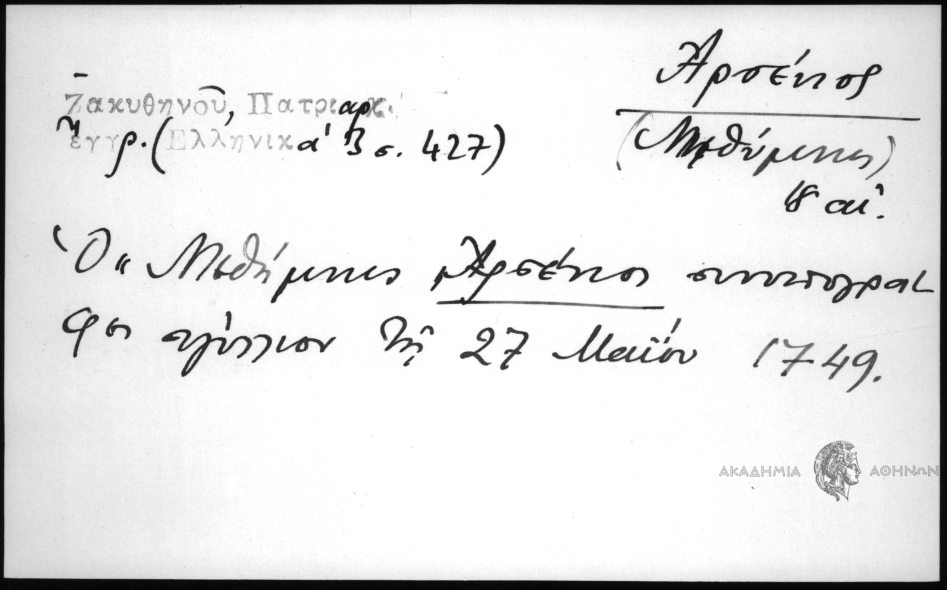 Ἀρσένιος
Ζακυθηνοῦ, Πατριαρχ.
ἔγγρ. (Ἑλληνικά 3 σ. 427)
(Μηθύμνης)
18 αἰ.
Ὁ Μηθύμνης Ἀρσένιος συνυπογρά
φει σιγίλλιον τῆς 27 Μαΐου 1749.
ΑΚΑΔΗΜΙΑ ΑΘΗΝΩΝ